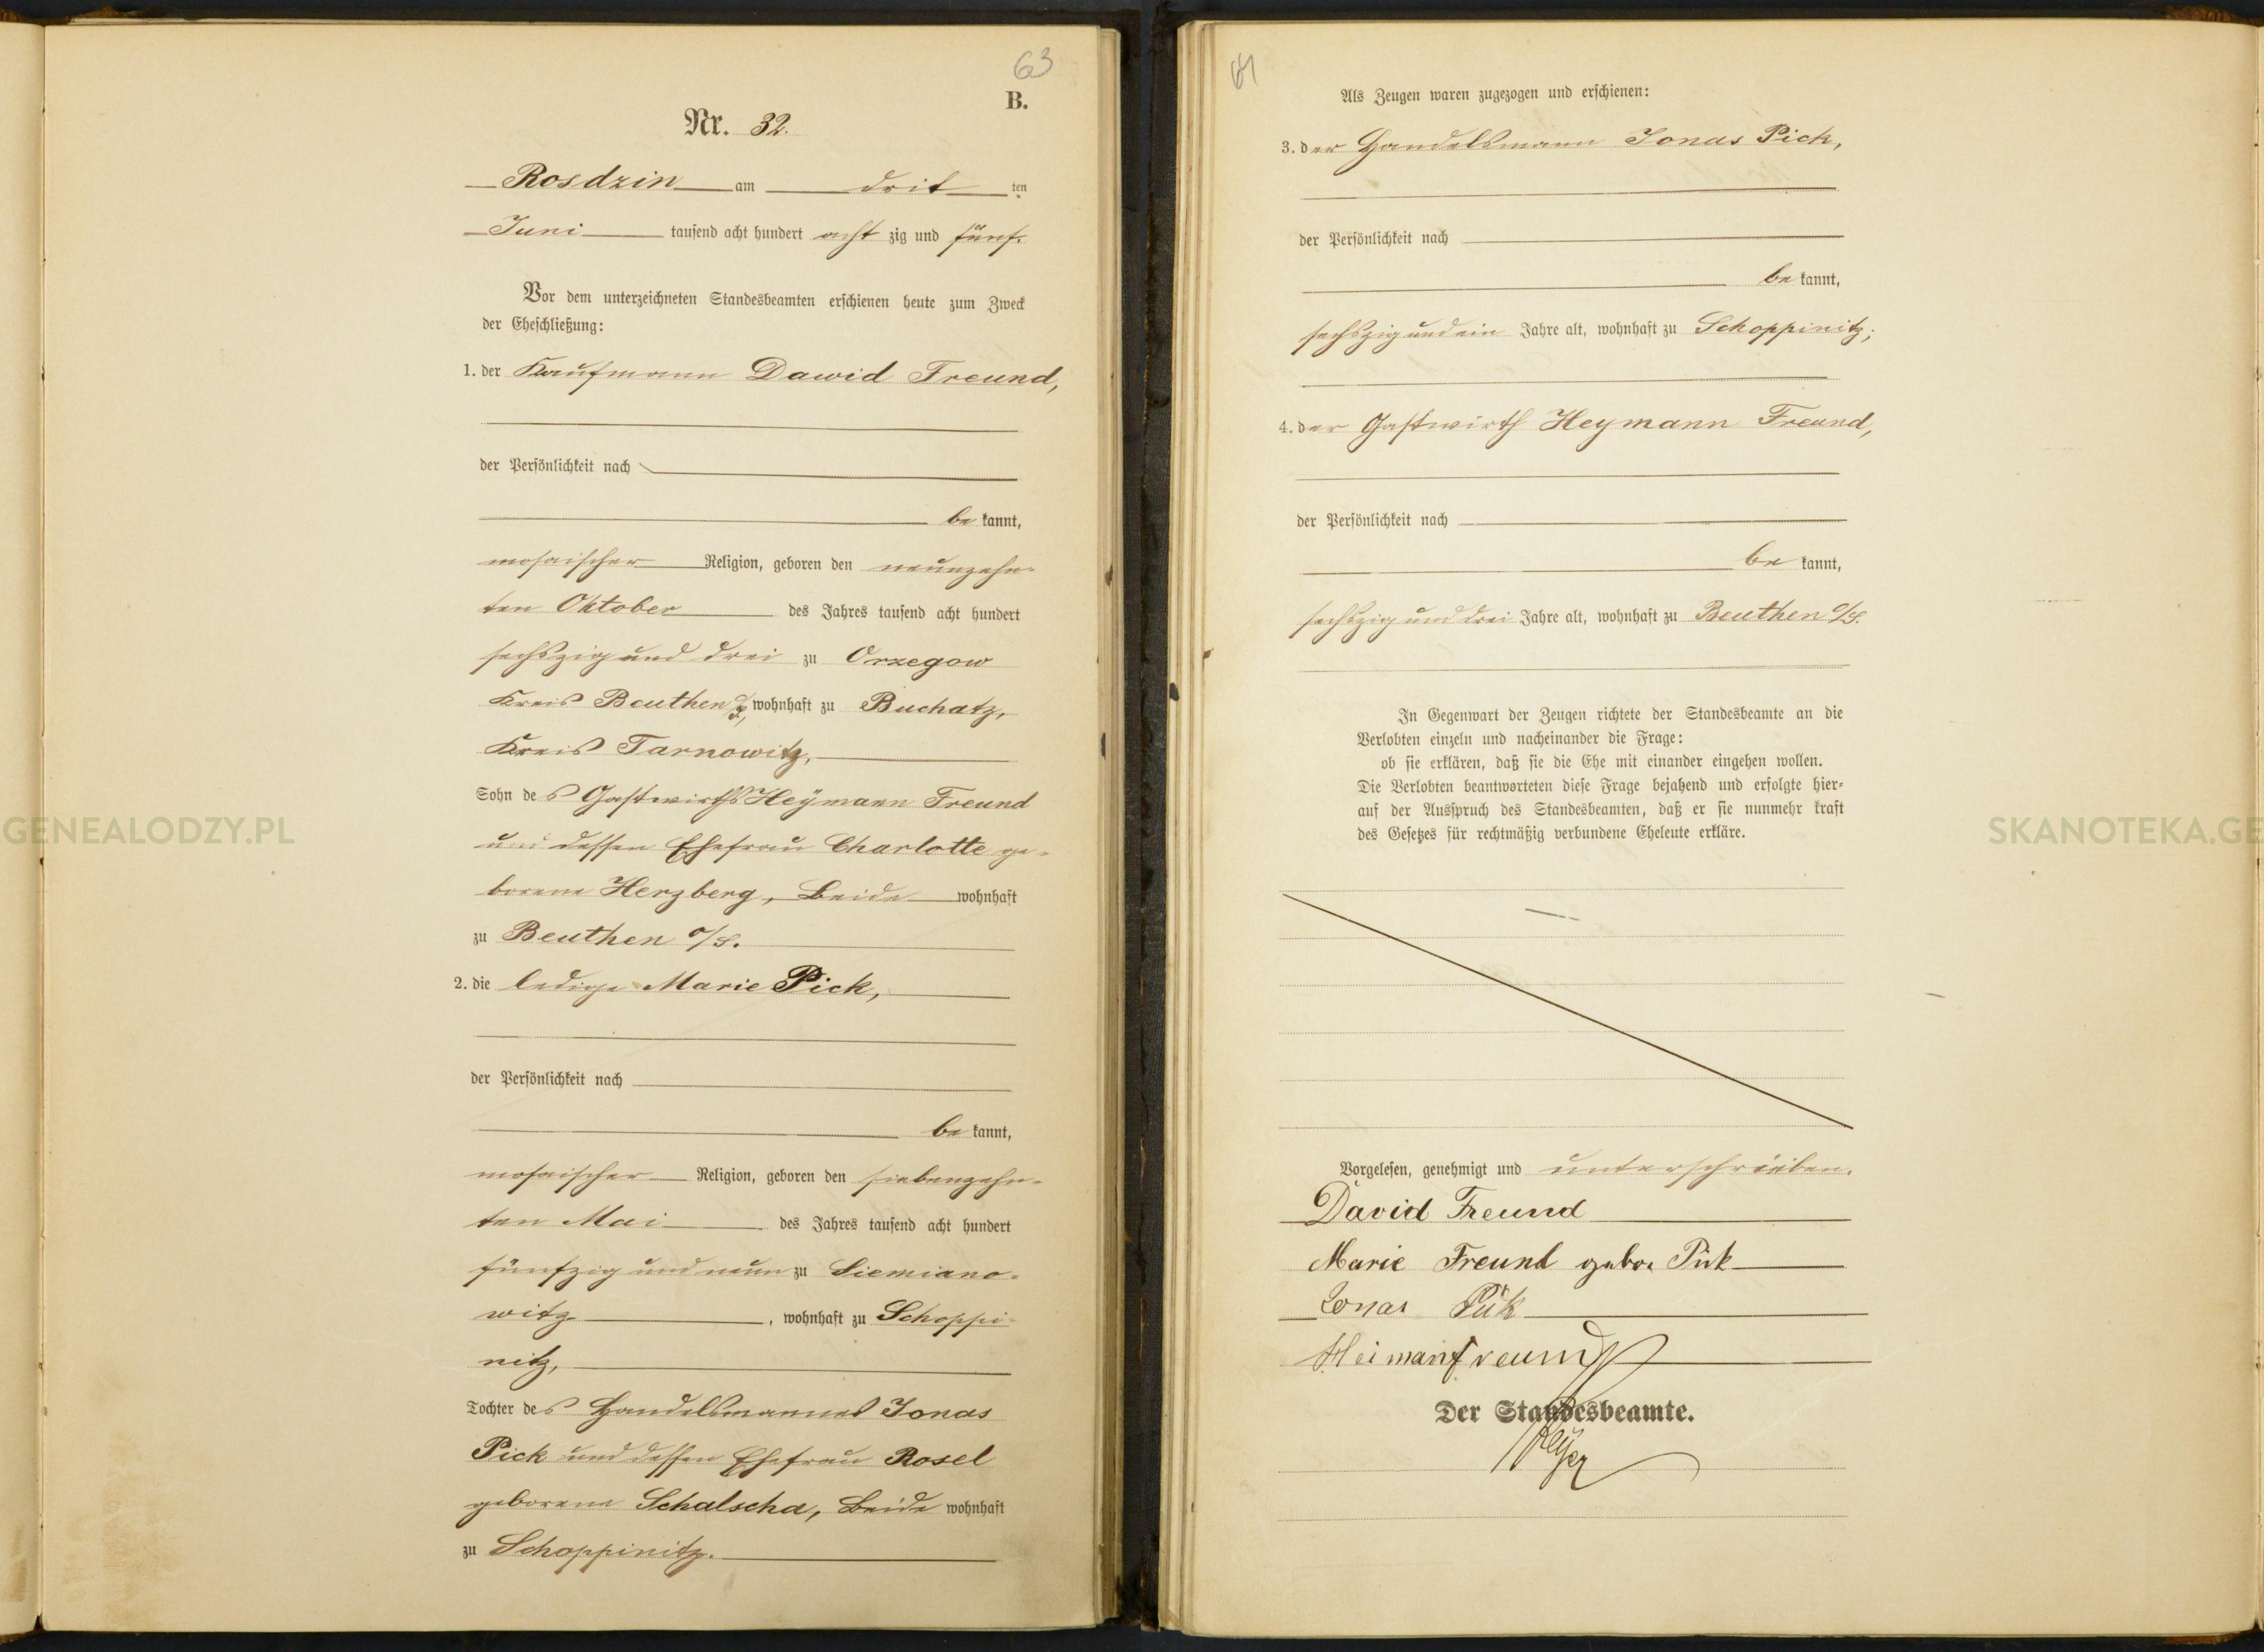 63
B.
Nr. 32.
Rosdzin am drit ten
Juni tausend acht hundert acht zig und fünf.
Vor dem unterzeichneten Standesbeamten erschienen heute zum Zweck
der Eheschließung:
1. der Kaufmann Dawid Freund,
der Persönlichkeit nach
be kannt,
mosaischer Religion, geboren den neunzehn-
ten Oktober des Jahres tausend acht hundert
sechszig und drei zu Orzegow
Kreis Beuthen o/S., wohnhaft zu Buchatz,
Kreis Tarnowitz,
Sohn des Gastwirths Heymann Freund
und dessen Ehefrau Charlotte ge-
borene Herzberg, Beide wohnhaft
zu Beuthen o/S.
2. die ledige Marie Pick,
der Persönlichkeit nach
be kannt,
mosaischer Religion, geboren den siebenzehn-
ten Mai des Jahres tausend acht hundert
fünfzig und neun zu Siemiano-
witz, wohnhaft zu Schoppi-
nitz,
Tochter des Handelsmannes Jonas
Pick und dessen Ehefrau Rosel
geborene Schalscha, Beide wohnhaft
zu Schoppinitz.
Als Zeugen waren zugezogen und erschienen:
3. der Handelsmann Jonas Pick,
der Persönlichkeit nach
be kannt,
sechszig und ein Jahre alt, wohnhaft zu Schoppinitz;
4. der Gastwirth Heymann Freund,
der Persönlichkeit nach
be kannt,
sechszig und drei Jahre alt, wohnhaft zu Beuthen o/S.
In Gegenwart der Zeugen richtete der Standesbeamte an die
Verlobten einzeln und nacheinander die Frage:
ob sie erklären, daß sie die Ehe mit einander eingehen wollen.
Die Verlobten beantworteten diese Frage bejahend und erfolgte hier-
auf der Ausspruch des Standesbeamten, daß er sie nunmehr kraft
des Gesetzes für rechtmäßig verbundene Eheleute erkläre.
Vorgelesen, genehmigt und unterschrieben.
David Freund
Marie Freund gebor Pick
Jonas Pick
Heiman Freund
Der Standesbeamte.
GENEALODZY.PL
SKANOTEKA.GE